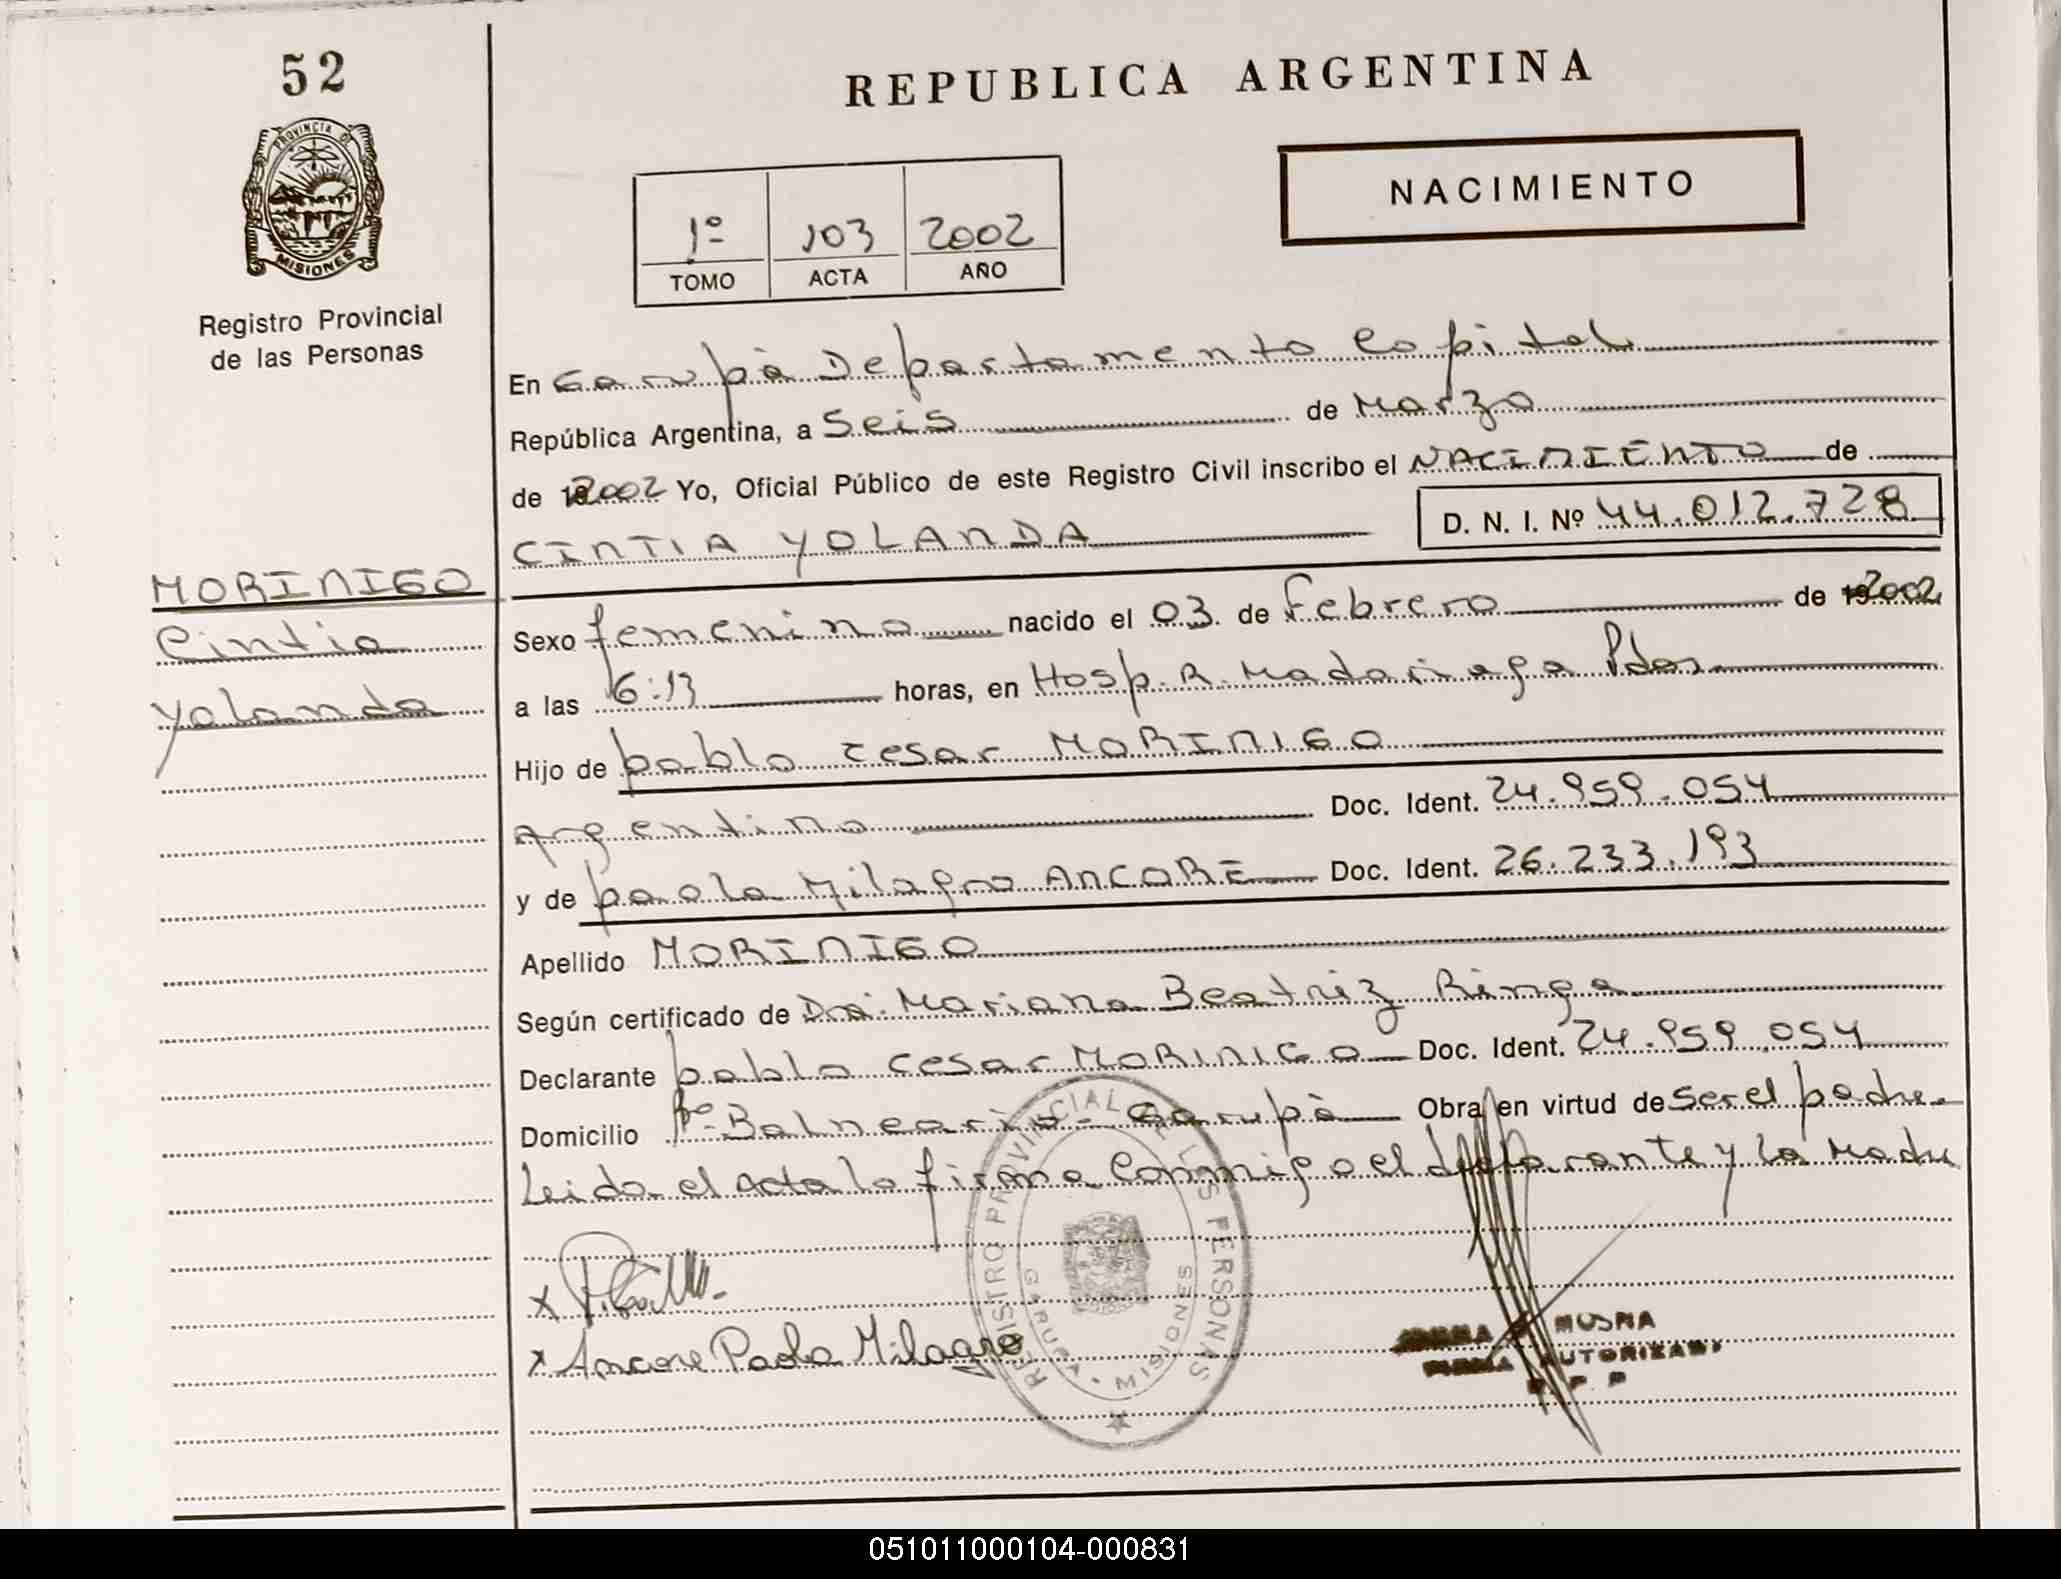 52
REPUBLICA ARGENTINA
PROVINCIA DE
MISIONES
Registro Provincial
de las Personas
NACIMIENTO
1º 103 2002
TOMO ACTA AÑO
En Garupà Departamento Capital
República Argentina, a Seis de Marzo
de 2002 Yo, Oficial Público de este Registro Civil inscribo el NACIMIENTO de
CINTIA YOLANDA D. N. I. Nº 44.012.728
MORINIGO
Cintia
Yolanda
Sexo femenino nacido el 03 de Febrero de 192002
a las 16:13 horas, en Hosp. R. Madariaga Pdas
Hijo de pablo cesar MORINIGO
Argentino Doc. Ident. 24.959.054
y de paola Milagro ANCORE Doc. Ident. 26.233.193
Apellido MORINIGO
Según certificado de Dra. Mariana Beatriz Ringa
Declarante pablo cesar MORINIGO Doc. Ident. 24.959.054
Domicilio Bº Balneario - Garupà Obra en virtud de ser el padre
Leida el acta la firma Conmigo el declarante y la Madre
REGISTRO PROVINCIAL DE LAS PERSONAS
GARUPA • MISIONES
x
x Ancore Paola Milagro
MUSMA
FIRMA AUTORIZADA
R. P. P
051011000104-000831